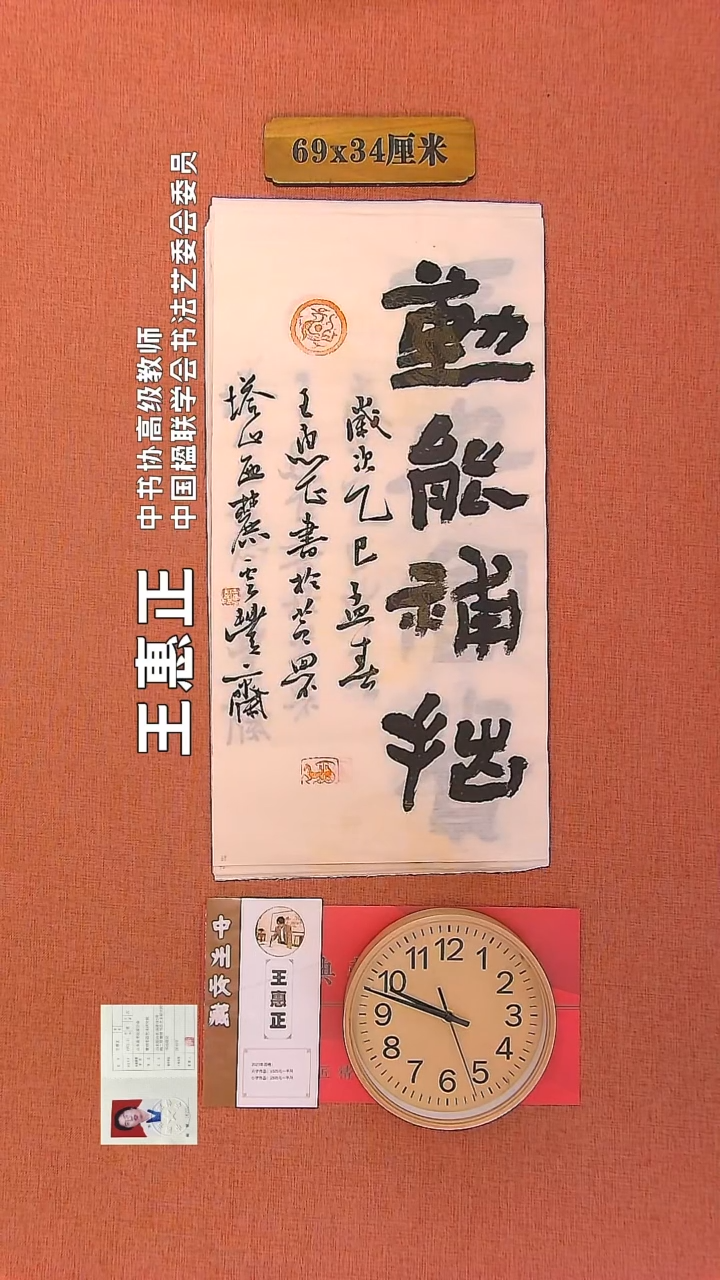 69x34厘米
勤能补拙
歲次乙巳孟春
王惠正書於莒界
塔山西麓雲豐齋
中书协高级教师
中国楹联学会书法艺委会委员
王惠正
中州收藏
王惠正
12
1
2
3
4
5
6
7
8
9
10
11